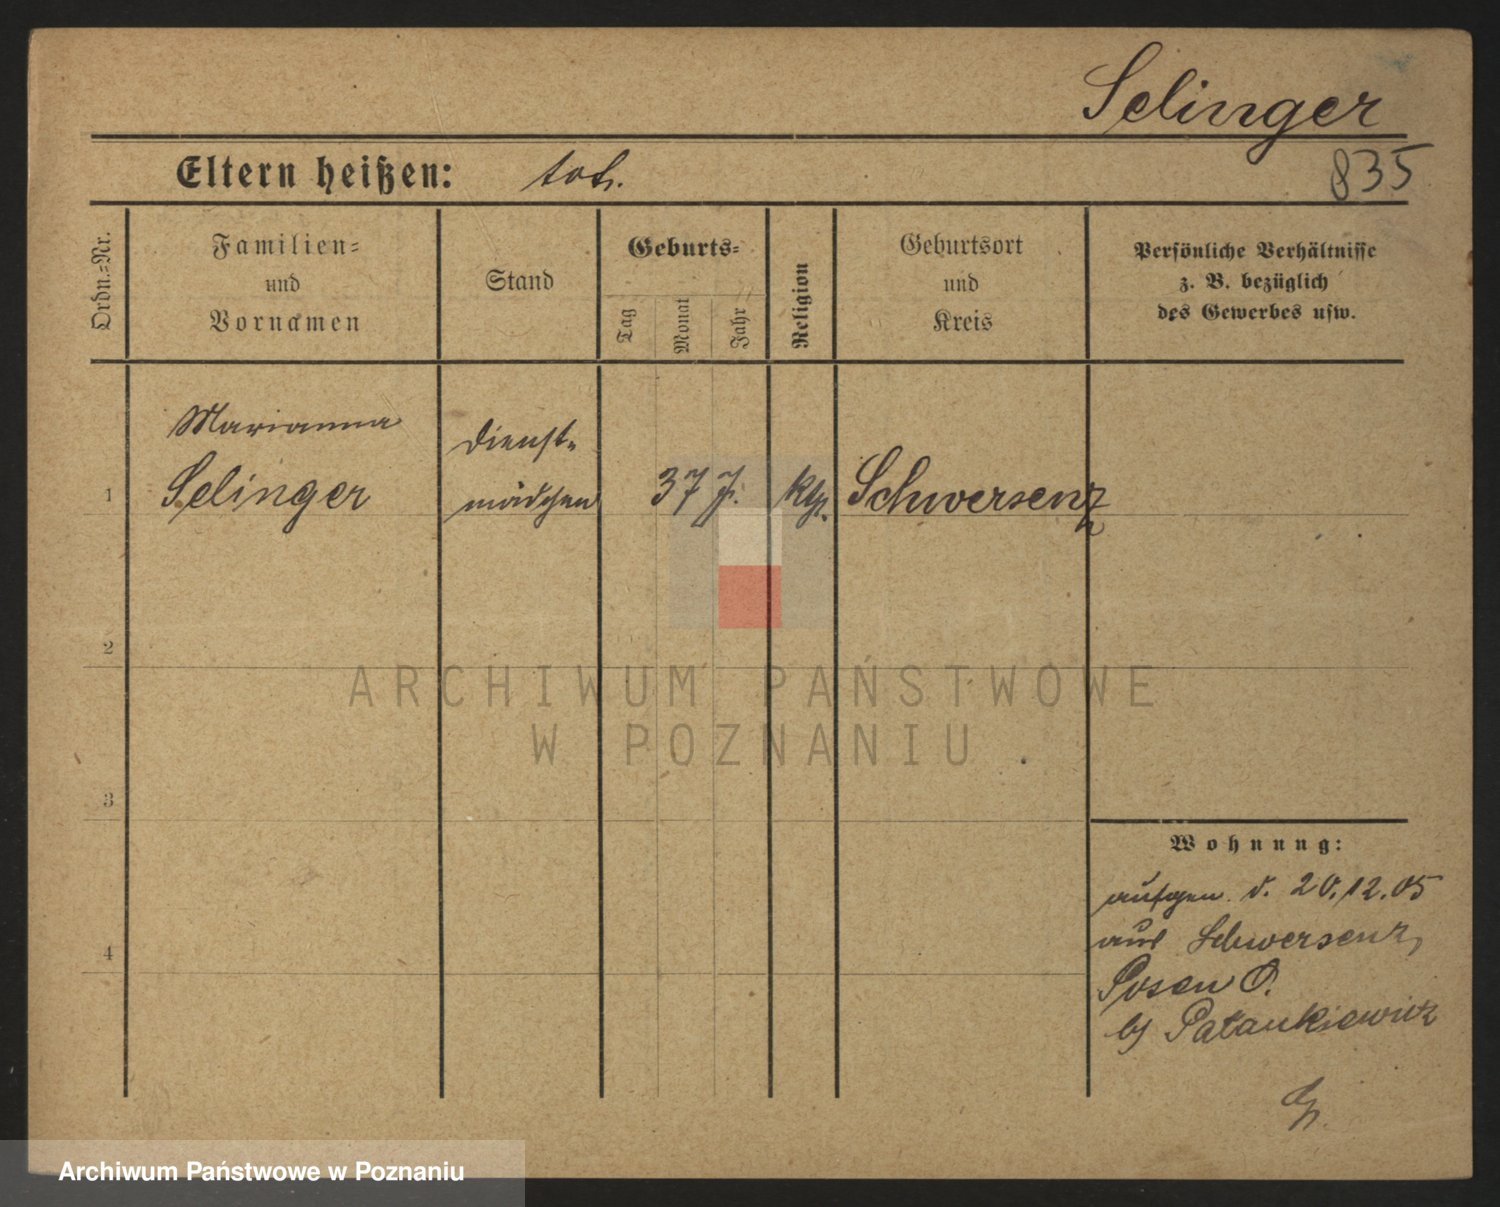 Selinger
835
Eltern heißen: tot.
Ordn.-Nr.
Familien-
und
Vornamen
Stand
Geburts-
Tag
Monat
Jahr
Religion
Geburtsort
und
Kreis
Persönliche Verhältnisse
z. B. bezüglich
des Gewerbes usw.
Marianna
Dienst-
1 Selinger mädchen 37 J. kth. Schwersenz
2
ARCHIWUM PAŃSTWOWE
W POZNANIU
3
Wohnung:
aufgen. d. 20.12.05
4 aus Schwersenz,
Posen O.
bj Patankiewicz
Archiwum Państwowe w Poznaniu